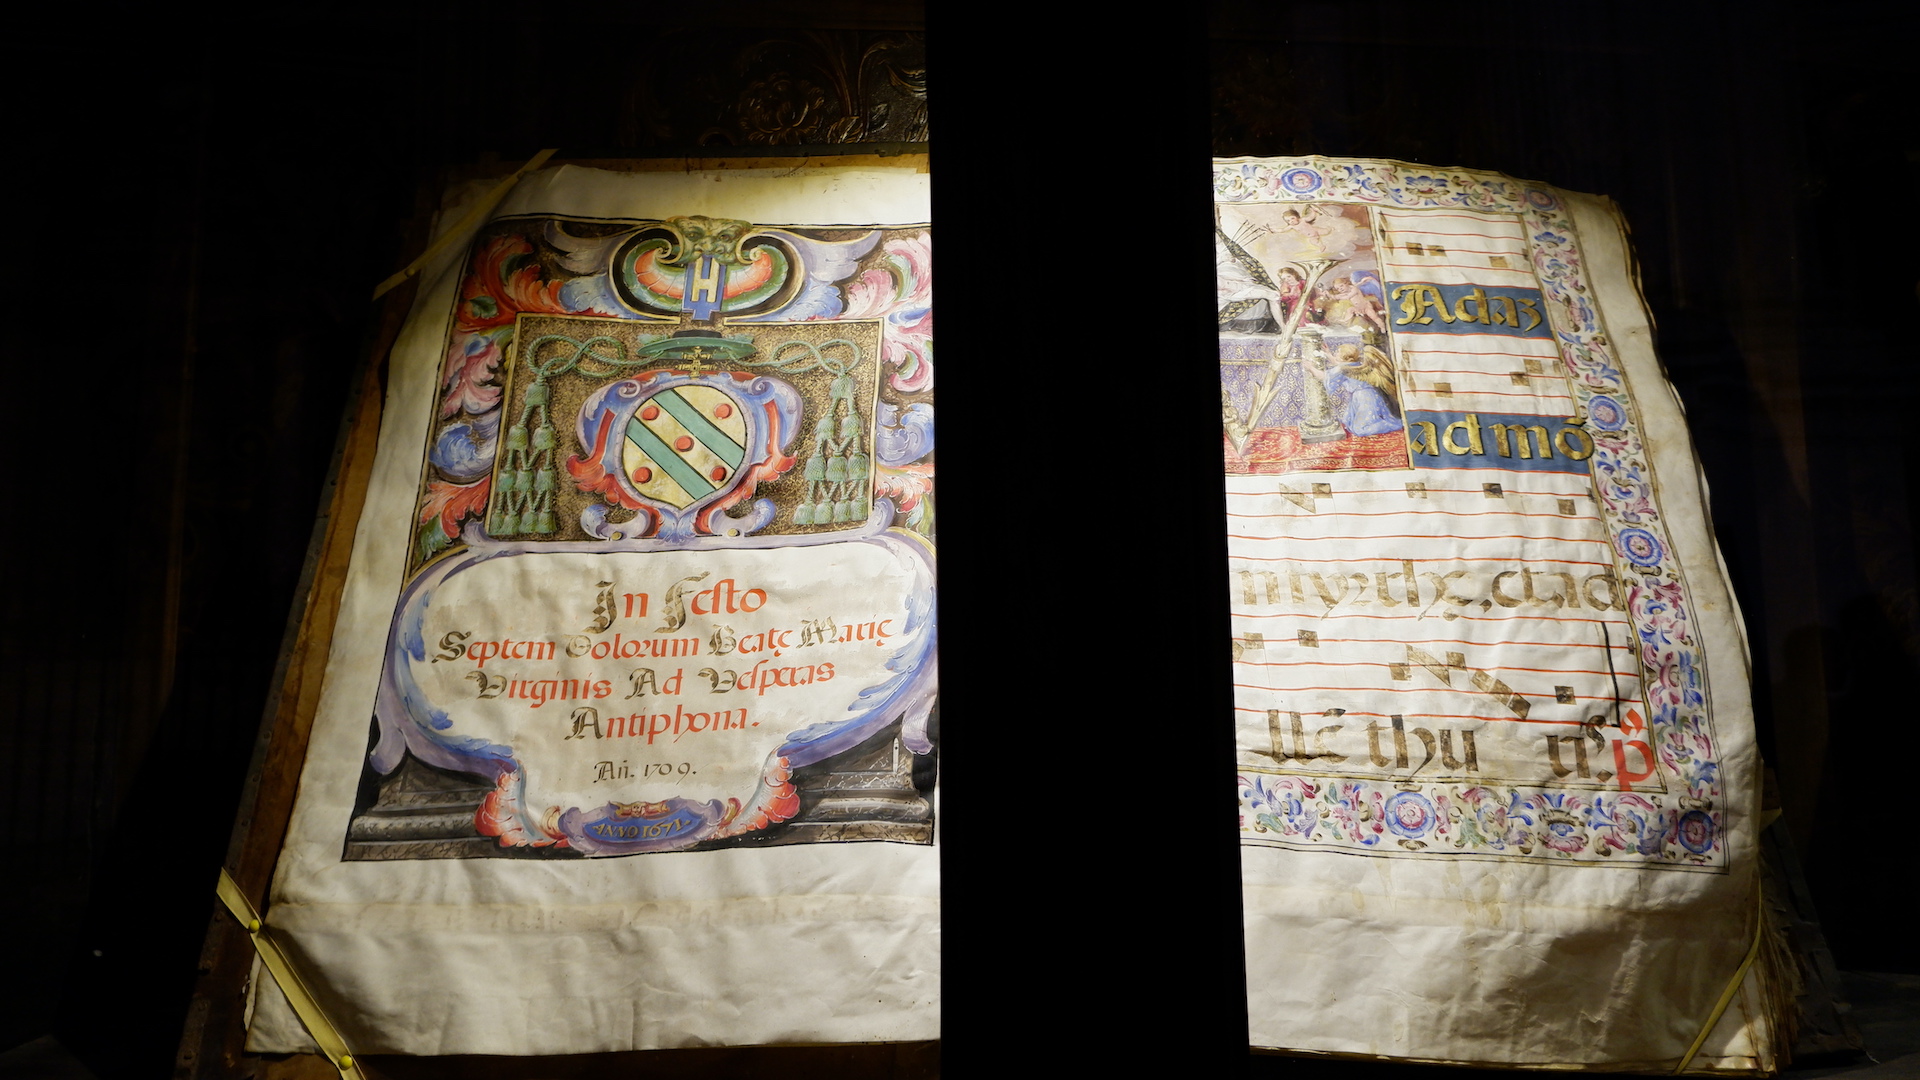 H
In Festo
Septem Dolorum Beatę Marię
Virginis Ad Vesperas
Antiphona.
Añ. 1709.
ANNO 1671.
Vadaz
ad mō
myrrhę, et ad
llē thu ris. p̃